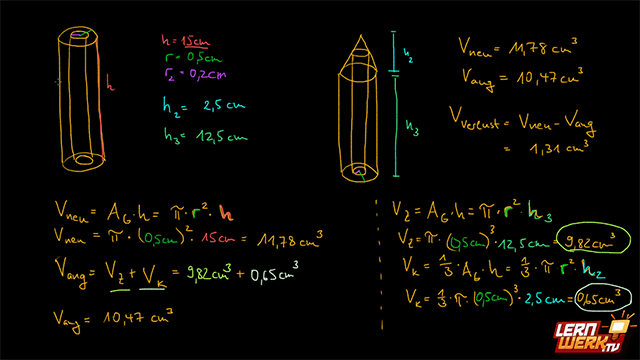 h
h = 15cm
r = 0,5cm
r₂ = 0,2cm
h₂ = 2,5cm
h₃ = 12,5cm
h₂
h₃
V_neu = 11,78 cm³
V_ang = 10,47 cm³
V_Verlust = V_neu - V_ang
= 1,31 cm³
V_neu = A_G · h = π · r² · h
V_neu = π · (0,5cm)² · 15cm = 11,78 cm³
V_ang = V_Z + V_K = 9,82cm³ + 0,65cm³
V_ang = 10,47 cm³
V_Z = A_G · h = π · r² · h₃
V_Z = π · (0,5cm)² · 12,5cm = 9,82cm³
V_K = 1/3 · A_G · h = 1/3 · π · r² · h₂
V_K = 1/3 · π · (0,5cm)² · 2,5cm = 0,65cm³
LERN
WERK
TV